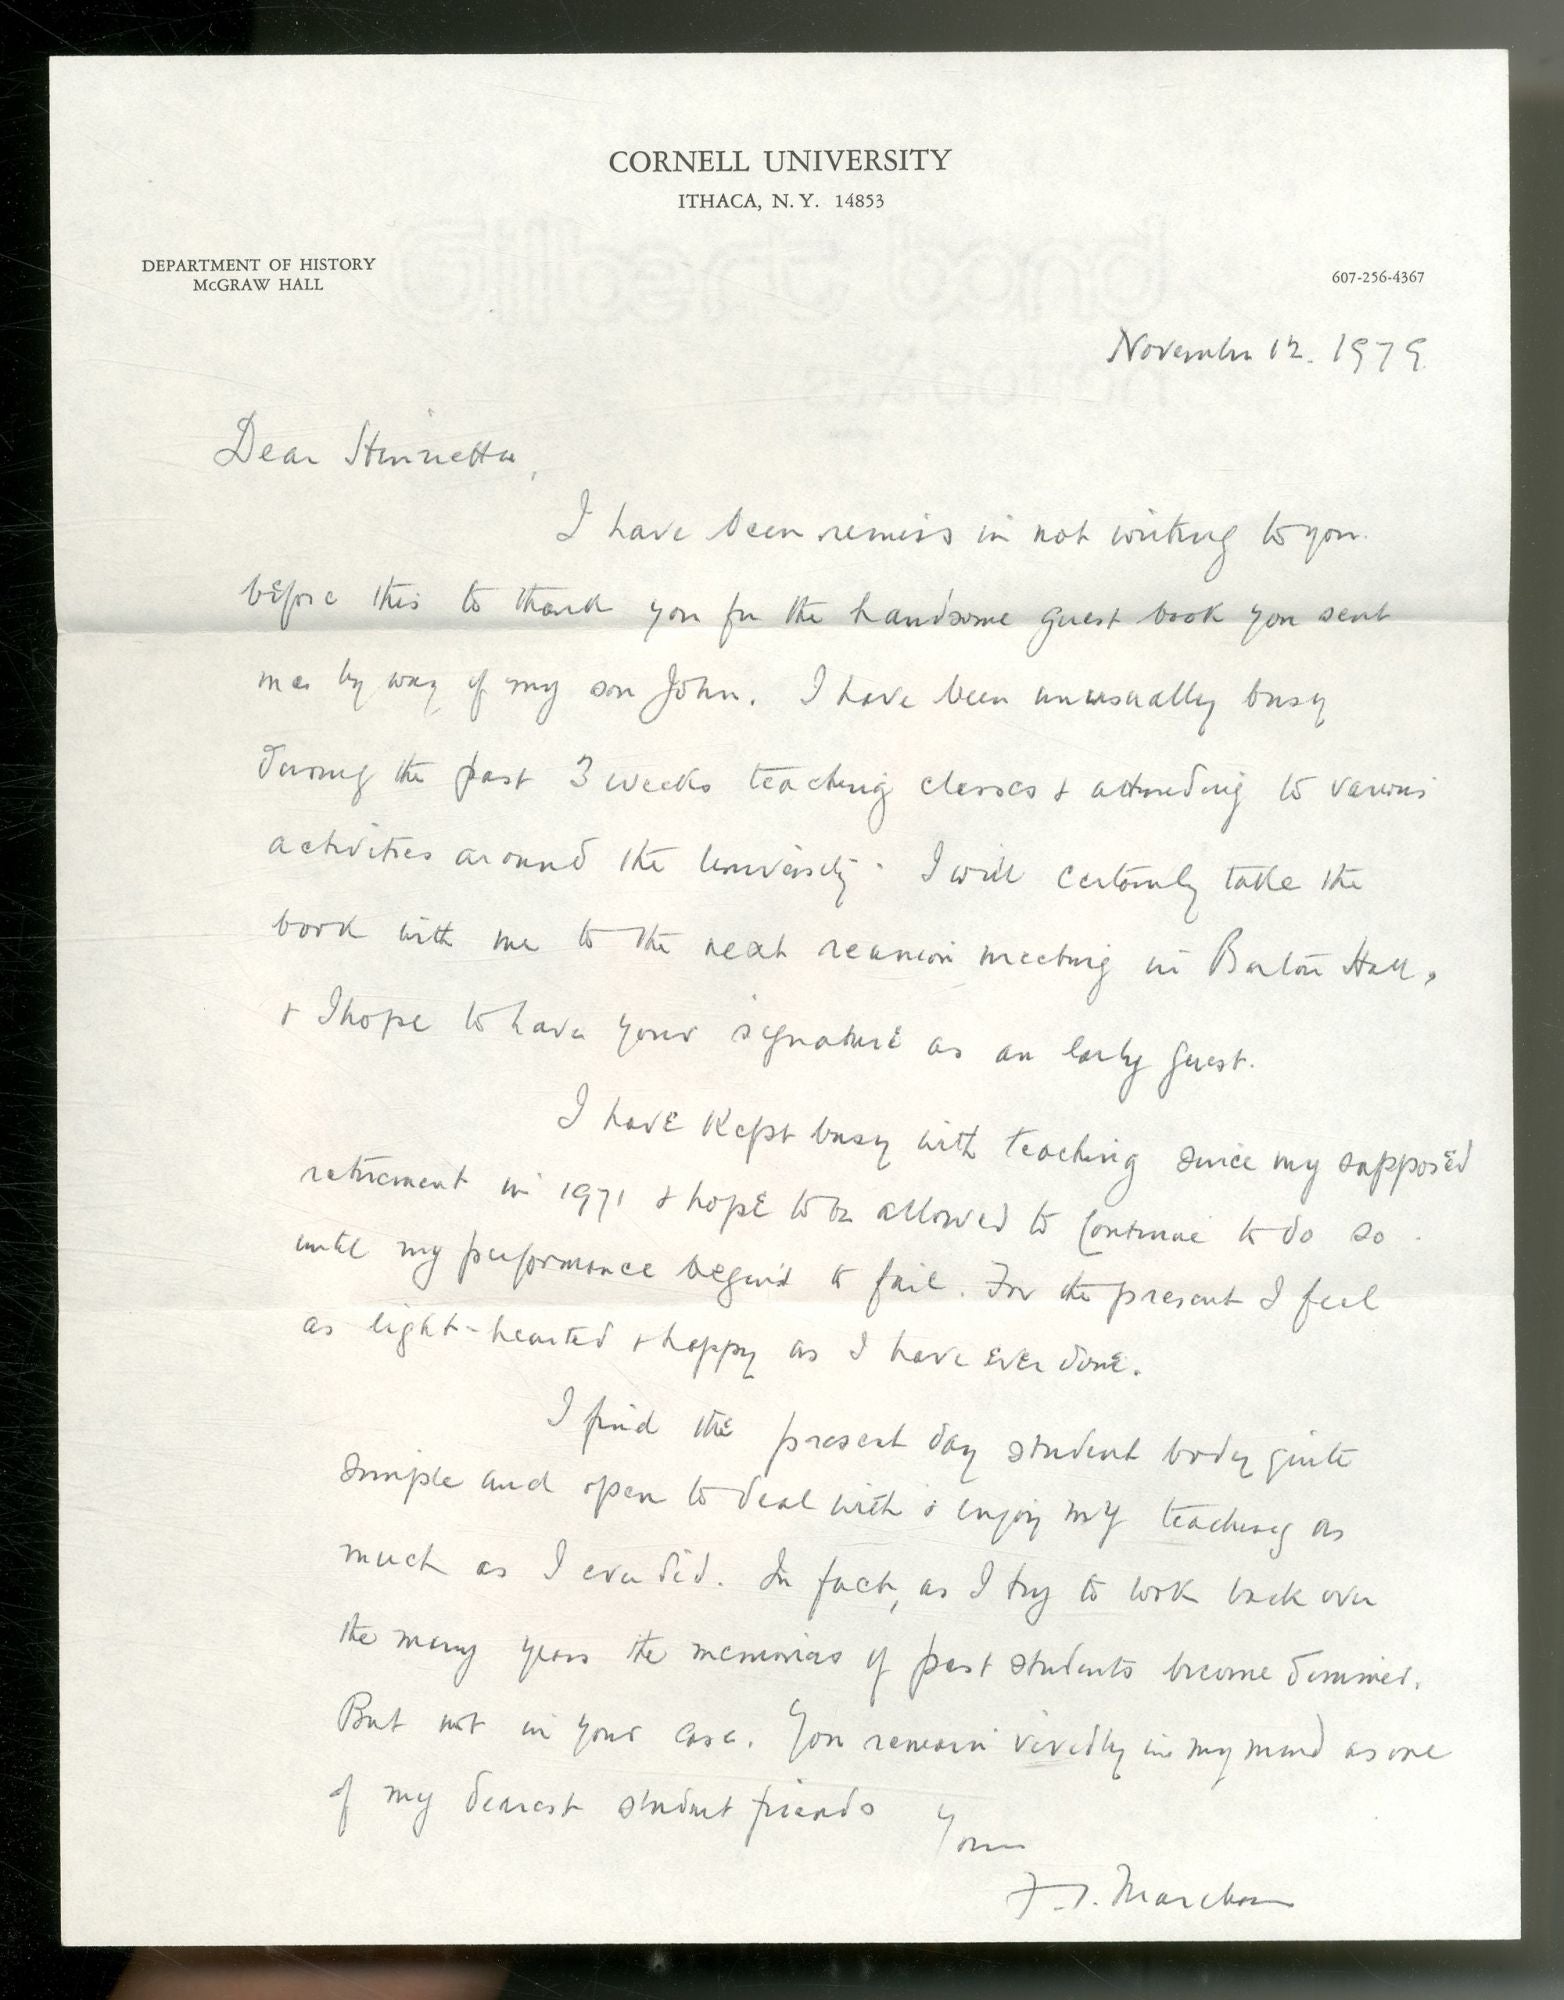 CORNELL UNIVERSITY
ITHACA, N.Y. 14853
DEPARTMENT OF HISTORY
McGRAW HALL
607-256-4367
November 12. 1979
Dear Henrietta,
I have been remiss in not writing to you
before this to thank you for the handsome guest book you sent
me by way of my son John. I have been unusually busy
during the past 3 weeks teaching classes & attending to various
activities around the University. I will certainly take the
book with me to the next reunion meeting in Barton Hall,
& I hope to have your signature as an early guest.
I have kept busy with teaching since my supposed
retirement in 1971 & hope to be allowed to continue to do so
until my performance begins to fail. For the present I feel
as light-hearted & happy as I have ever done.
I find the present day student body quite
simple and open to deal with & enjoy my teaching as
much as I ever did. In fact, as I try to look back over
the many years the memories of past students become dimmer.
But not in your case. You remain vividly in my mind as one
of my dearest student friends
Yours
F. G. Marcham